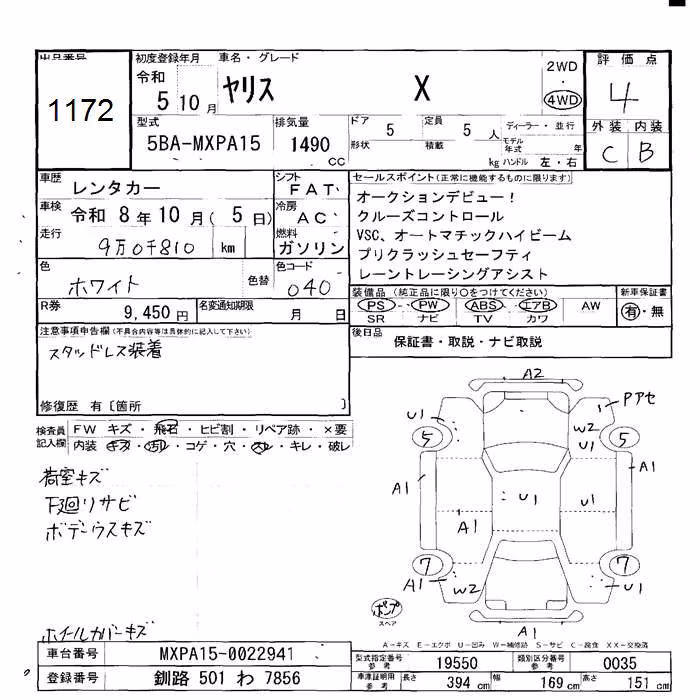 出品番号 初度登録年月 車名・グレード 2WD 評価点
1172 令和 5 10月 ヤリス X ・ 4WD 4
型式 排気量 ドア 5 定員 5 人 ディーラー・並行 外装 内装
5BA-MXPA15 1490 CC 形状 積載 kg モデル年式 年 ハンドル 左・右 C B
車歴 レンタカー シフト FAT セールスポイント(正常に機能するものに限ります)
車検 令和 8年10月(5日) 冷房 AC オークションデビュー!
クルーズコントロール
走行 9万0千810 km 燃料 ガソリン VSC、オートマチックハイビーム
プリクラッシュセーフティ
色 ホワイト 色替 色コード 040 レーントレーシングアシスト
装備品(純正品に限り○をつけてください) 新車保証書
R券 9,450円 名変通知期限 月 日 PS・PW ABS・エアB AW 有・無
SR ナビ TV カワ
注意事項申告欄(不具合内容等は具体的に記入して下さい) 後日品 保証書・取説・ナビ取説
スタッドレス装着
修復歴 有〔箇所 〕
検査員記入欄 FW キズ・飛石・ヒビ割・リペア跡・×要
内装 キズ・汚れ・コゲ・穴・スレ・キレ・破レ
荷室キズ
下廻リサビ
ボデーウスキズ
ホイールカバーキズ
A2
U1 W2 Pアセ
5 U1 5
A1 A1
U1 U1
A1
7 7
A1 W2 U1
ポンプ
スペア A1
A-キズ E-エクボ U-凹み W-補修跡 S-サビ C-腐食 XX-交換済
車台番号 MXPA15-0022941 型式指定番号 参考 19550 類別区分番号 参考 0035
登録番号 釧路 501 わ 7856 車庫証明用 参考 長さ 394 cm 幅 169 cm 高さ 151 cm